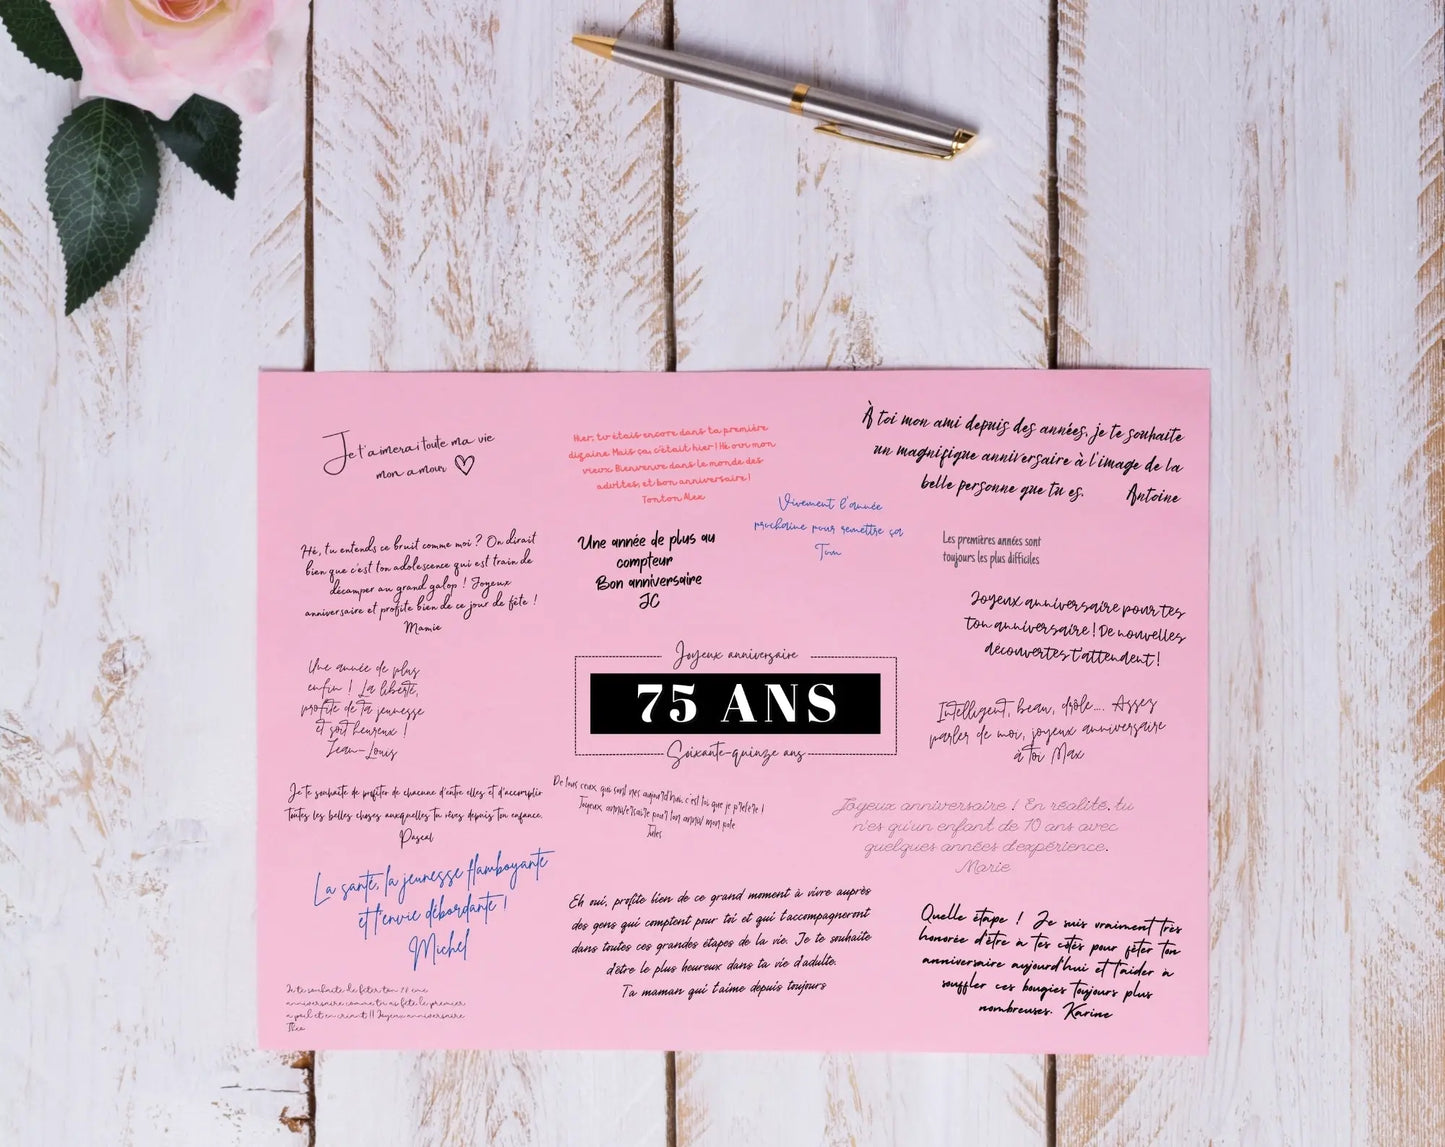 Je t'aimerai toute ma vie
mon amour
Hier, tu étais encore dans ta première
dizaine. Mais ça, c'était hier ! Hé oui mon
vieux. Bienvenue dans le monde des
adultes, et bon anniversaire !
Tonton Alex
À toi mon ami depuis des années, je te souhaite
un magnifique anniversaire à l'image de la
belle personne que tu es. Antoine
Vivement l'année
prochaine pour remettre ça
Tom
Hé, tu entends ce bruit comme moi ? On dirait
bien que c'est ton adolescence qui est train de
décamper au grand galop ! Joyeux
anniversaire et profite bien de ce jour de fête !
Mamie
Une année de plus au
compteur
Bon anniversaire
JC
Les premières années sont
toujours les plus difficiles
Joyeux anniversaire pour tes
ton anniversaire ! De nouvelles
découvertes t'attendent !
Une année de plus
enfin ! La liberté,
profite de ta jeunesse
et soit heureux !
Jean-Louis
Joyeux anniversaire
75 ANS
Soixante-quinze ans
Intelligent, beau, drôle.... Assez
parler de moi, joyeux anniversaire
à toi Max
Je te souhaite de profiter de chacune d'entre elles et d'accomplir
toutes les belles choses auxquelles tu rêves depuis ton enfance.
Pascal
De tous ceux qui sont nés aujourd'hui, c'est toi que je préfère !
Joyeux anniversaire pour ton anniv mon pote
Jules
Joyeux anniversaire ! En réalité, tu
n'es qu'un enfant de 10 ans avec
quelques années d'expérience.
Marie
La santé, la jeunesse flamboyante
et l'envie débordante !
Michel
Eh oui, profite bien de ce grand moment à vivre auprès
des gens qui comptent pour toi et qui t'accompagneront
dans toutes ces grandes étapes de la vie. Je te souhaite
d'être le plus heureux dans ta vie d'adulte.
Ta maman qui t'aime depuis toujours
Quelle étape ! Je suis vraiment très
honorée d'être à tes côtés pour fêter ton
anniversaire aujourd'hui et t'aider à
souffler ces bougies toujours plus
nombreuses. Karine
Je te souhaite de fêter ton 78 ème
anniversaire comme tu as fêté le premier
à poil et en criant !! Joyeux anniversaire
Théo